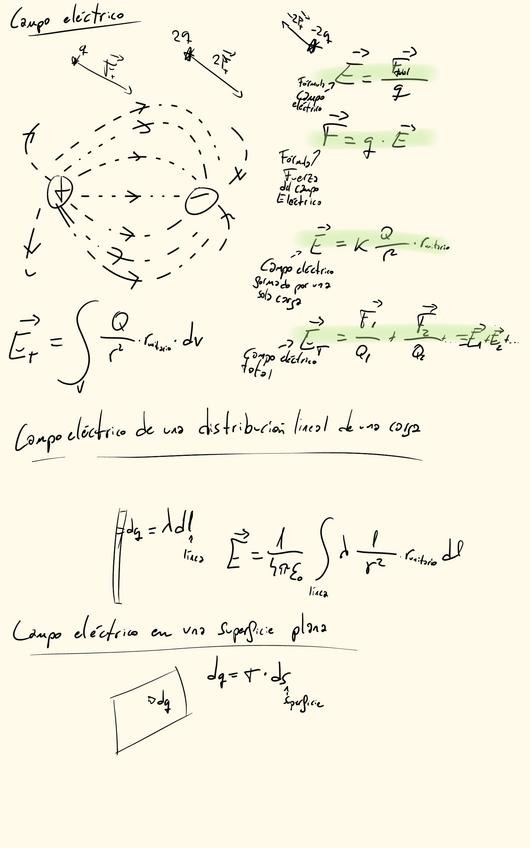 Campo eléctrico
q
F⃗ₜ
2q
2F⃗ₜ
-2F⃗ₜ
-2q
Fórmula
Campo
eléctrico
E⃗ = F⃗total / q
F⃗ = q · E⃗
Fórmula
Fuerza
del campo
Electrico
+
-
E⃗ = K Q / r² · r unitario
Campo eléctrico
formado por una
sola carga
E⃗ₜ = ∫ᵥ Q / r² · r unitario · dv
E⃗ᴛ = F⃗₁ / Q₁ + F⃗₂ / Q₂ + ... = E⃗₁ + E⃗₂ + ...
Campo eléctrico
total
Campo eléctrico de una distribución lineal de una carga
dq = λ dl
línea
E⃗ = 1 / 4πε₀ ∫línea λ 1 / r² · r unitario dl
Campo eléctrico en una superficie plana
dq
dq = σ · ds
superficie